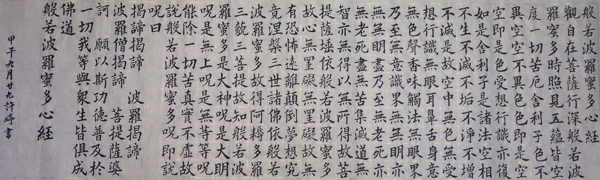 般若波羅蜜多心經
觀自在菩薩行深般若波
羅蜜多時照見五蘊皆空
度一切苦厄舍利子色不
異空空不異色色即是空
空即是色受想行識亦復
如是舍利子是諸法空相
不生不滅不垢不淨不增
不減是故空中無色無受
想行識無眼耳鼻舌身意
無色聲香味觸法無眼界
乃至無意識界無無明亦
無無明盡乃至無老死亦
無老死盡無苦集滅道無
智亦無得以無所得故菩
提薩埵依般若波羅蜜多
故心無罣礙無罣礙故無
有恐怖遠離顛倒夢想究
竟涅槃三世諸佛依般若
波羅蜜多故得阿耨多羅
三藐三菩提故知般若波
羅蜜多是大神呪是大明
呪是無上呪是無等等呪
能除一切苦真實不虛故
說般若波羅蜜多呪即說
呪曰
揭諦揭諦 波羅揭諦
波羅僧揭諦 菩提薩婆
訶 願以斯功德普及於
一切我等與眾生皆俱成
佛道
般若波羅蜜多心經
甲午九月廿九許婷書